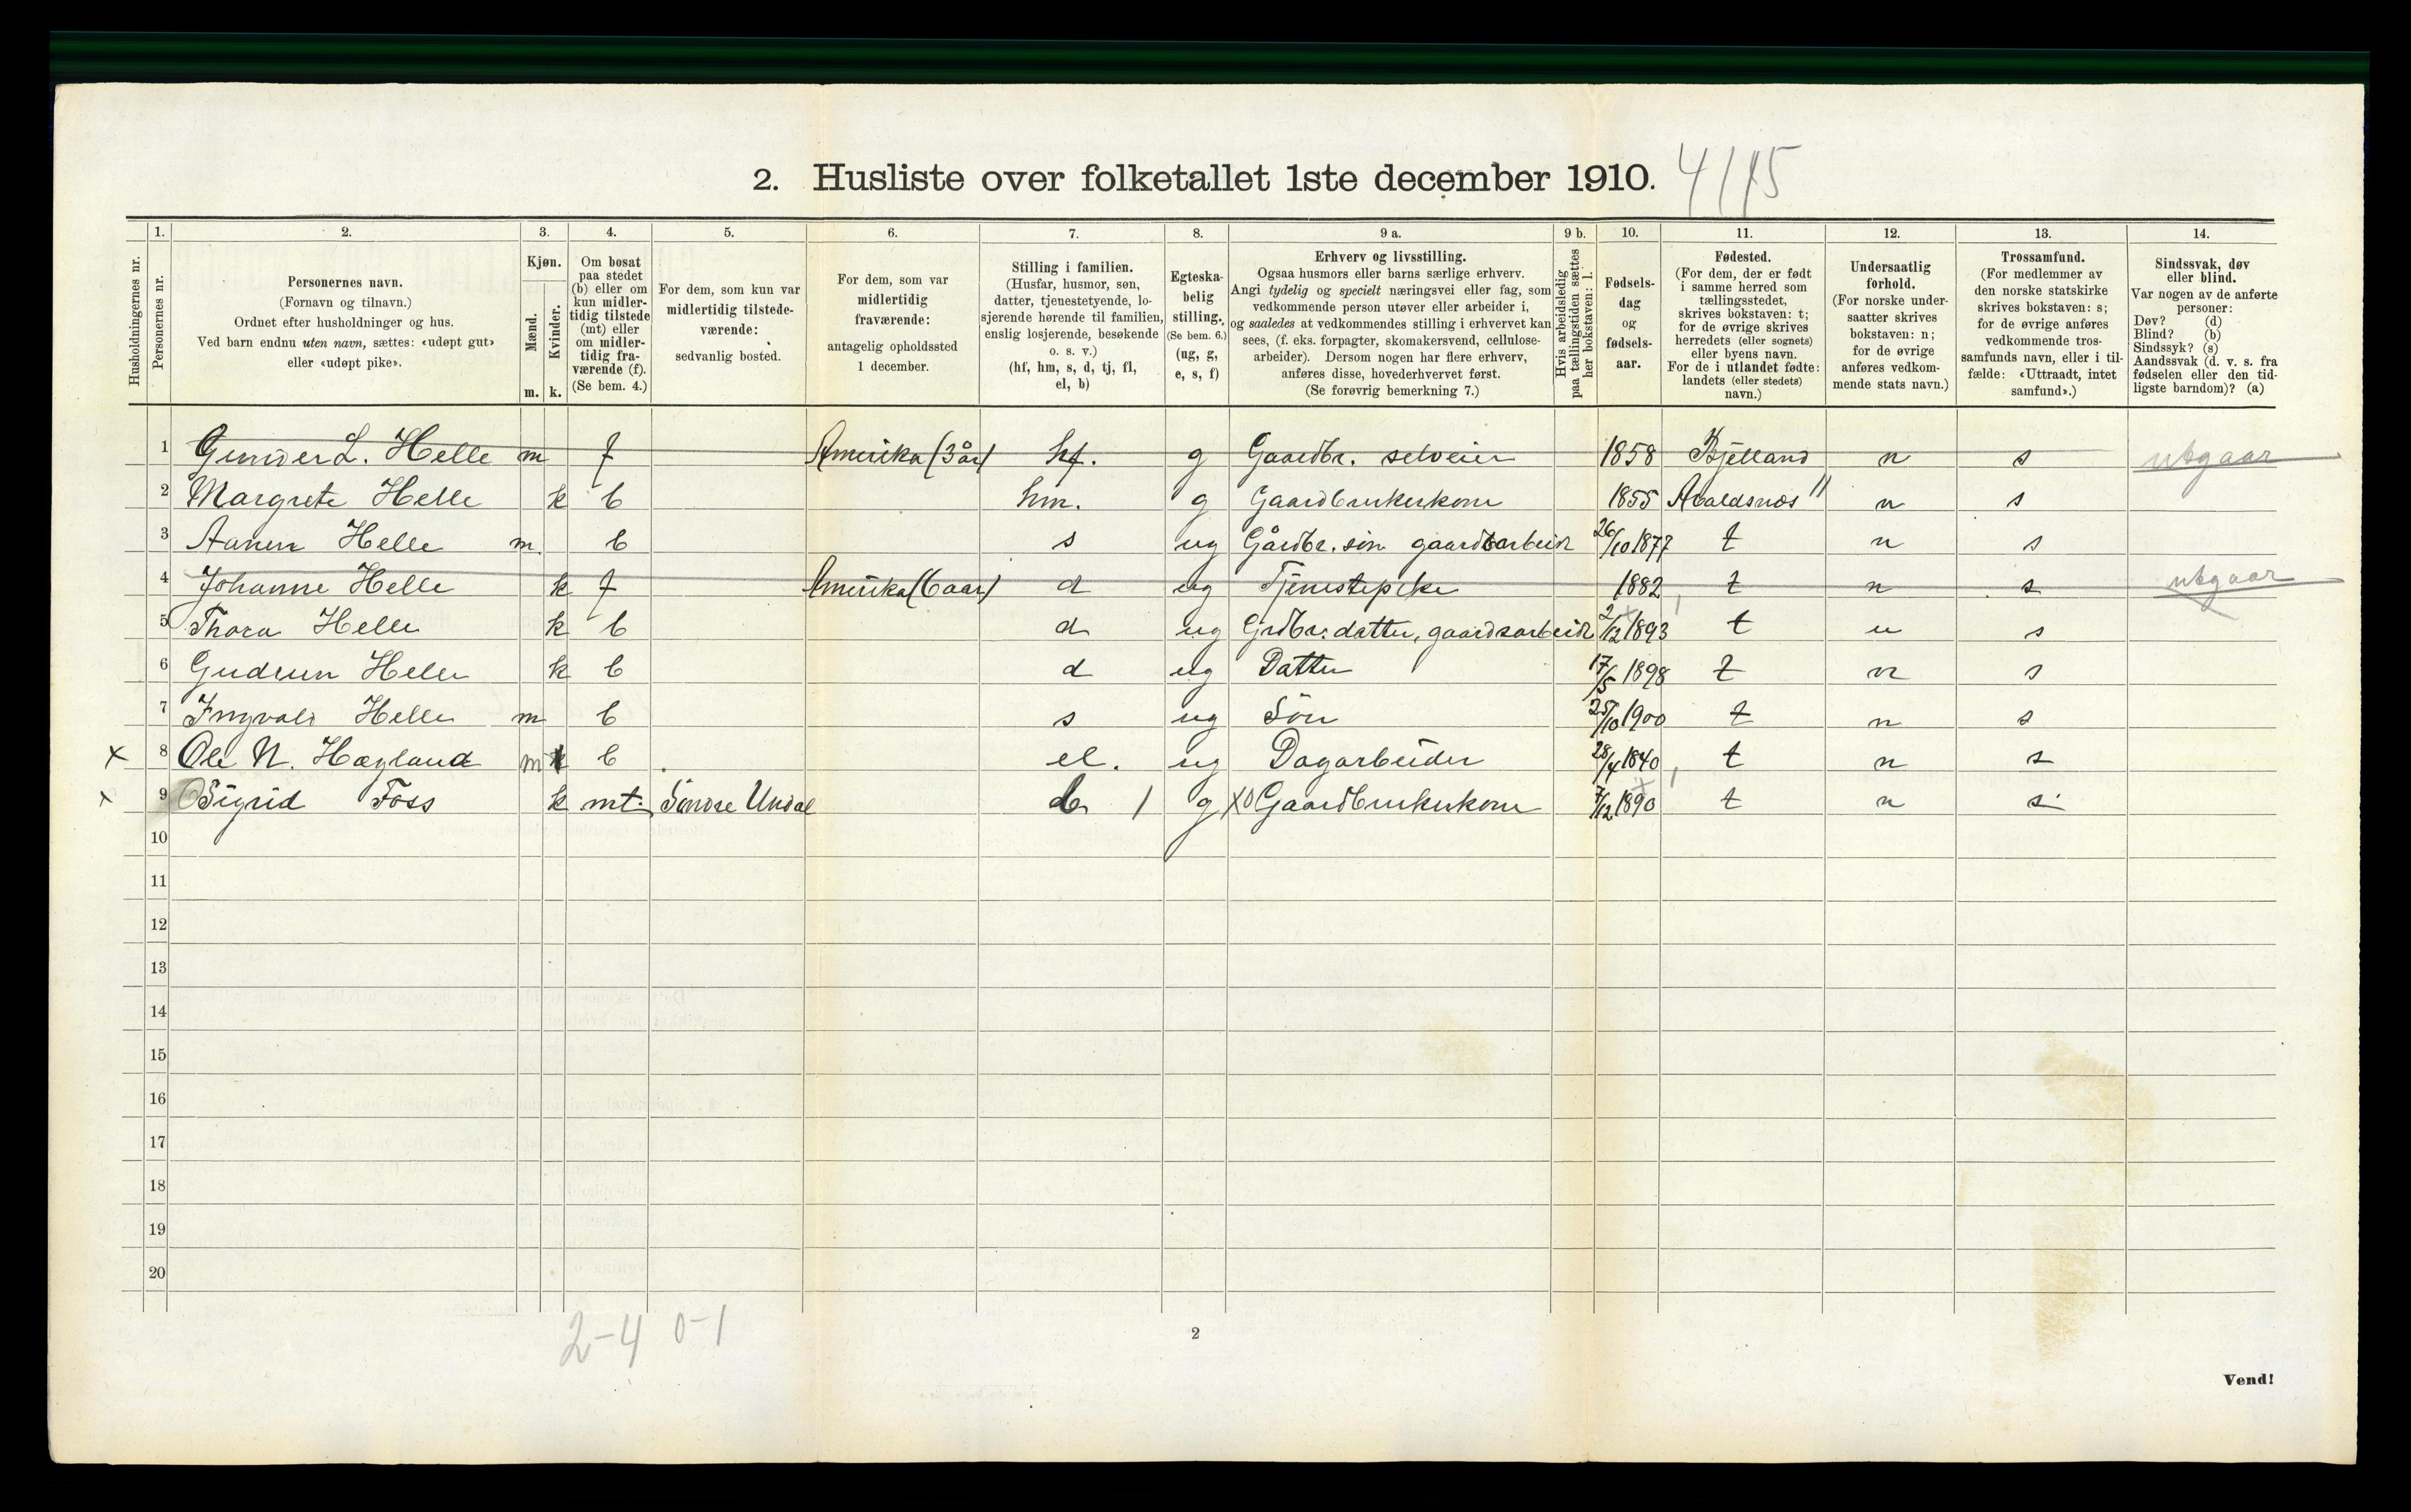 2. Husliste over folketallet 1ste december 1910. 4/15
1. 2. 3. 4. 5. 6. 7. 8. 9 a. 9 b. 10. 11. 12. 13. 14.
Husholdningernes nr.
Personernes nr.
Personernes navn.
(Fornavn og tilnavn.)
Ordnet efter husholdninger og hus.
Ved barn endnu uten navn, sættes: «udøpt gut»
eller «udøpt pike».
Kjøn.
Mænd.
Kvinder.
m. k.
Om bosat
paa stedet
(b) eller om
kun midler-
tidig tilstede
(mt) eller
om midler-
tidig fra-
værende (f).
(Se bem. 4.)
For dem, som kun var
midlertidig tilstede-
værende:
sedvanlig bosted.
For dem, som var
midlertidig
fraværende:
antagelig opholdssted
1 december.
Stilling i familien.
(Husfar, husmor, søn,
datter, tjenestetyende, lo-
sjerende hørende til familien,
enslig losjerende, besøkende
o. s. v.)
(hf, hm, s, d, tj, fl,
el, b)
Egteska-
belig
stilling.
(Se bem. 6.)
(ug, g,
e, s, f)
Erhverv og livsstilling.
Ogsaa husmors eller barns særlige erhverv.
Angi tydelig og specielt næringsvei eller fag, som
vedkommende person utøver eller arbeider i,
og saaledes at vedkommendes stilling i erhvervet kan
sees, (f. eks. forpagter, skomakersvend, cellulose-
arbeider). Dersom nogen har flere erhverv,
anføres disse, hovederhvervet først.
(Se forøvrig bemerkning 7.)
Hvis arbeidsledig
paa tællingstiden sættes
her bokstaven: l.
Fødsels-
dag
og
fødsels-
aar.
Fødested.
(For dem, der er født
i samme herred som
tællingsstedet,
skrives bokstaven: t;
for de øvrige skrives
herredets (eller sognets)
eller byens navn.
For de i utlandet fødte:
landets (eller stedets)
navn.)
Undersaatlig
forhold.
(For norske under-
saatter skrives
bokstaven: n;
for de øvrige
anføres vedkom-
mende stats navn.)
Trossamfund.
(For medlemmer av
den norske statskirke
skrives bokstaven: s;
for de øvrige anføres
vedkommende tros-
samfunds navn, eller i til-
fælde: «Uttraadt, intet
samfund».)
Sindssvak, døv
eller blind.
Var nogen av de anførte
personer:
Døv? (d)
Blind? (b)
Sindssyk? (s)
Aandssvak (d. v. s. fra
fødselen eller den tid-
ligste barndom)? (a)
1 Gunder L. Helle m f Amerika (3 år) hf. g Gaardbr. selveier 1858 Bjelland n s utgaar
2 Margrete Helle k b hm. g Gaardbrukerkone 1855 Avaldsnes 11 n s
3 Aanen Helle m. b s ug Gårdbr. søn gaardsarbeide 26/10 1877 t n s
4 Johanne Helle k f Amerika (6 aar) d ug Tjenestepike 1882 t n s utgaar
5 Thora Helle k b d ug Grdbr. datter, gaardsarbeide 2/12 1893 t n s
6 Gudrun Helle k b d ug Datter 17/5 1898 t n s
7 Ingvald Helle m b s ug Søn 25/10 1900 t n s
x 8 Ole N. Hægland m b el. ug Dagarbeider 28/4 1840 t n s
x 9 Sigrid Foss k mt. Søndre Undal b g Gaardbrukerkone 7/12 1890 t n s
10
11
12
13
14
15
16
17
18
19
20
2-4 0-1
2
Vend!